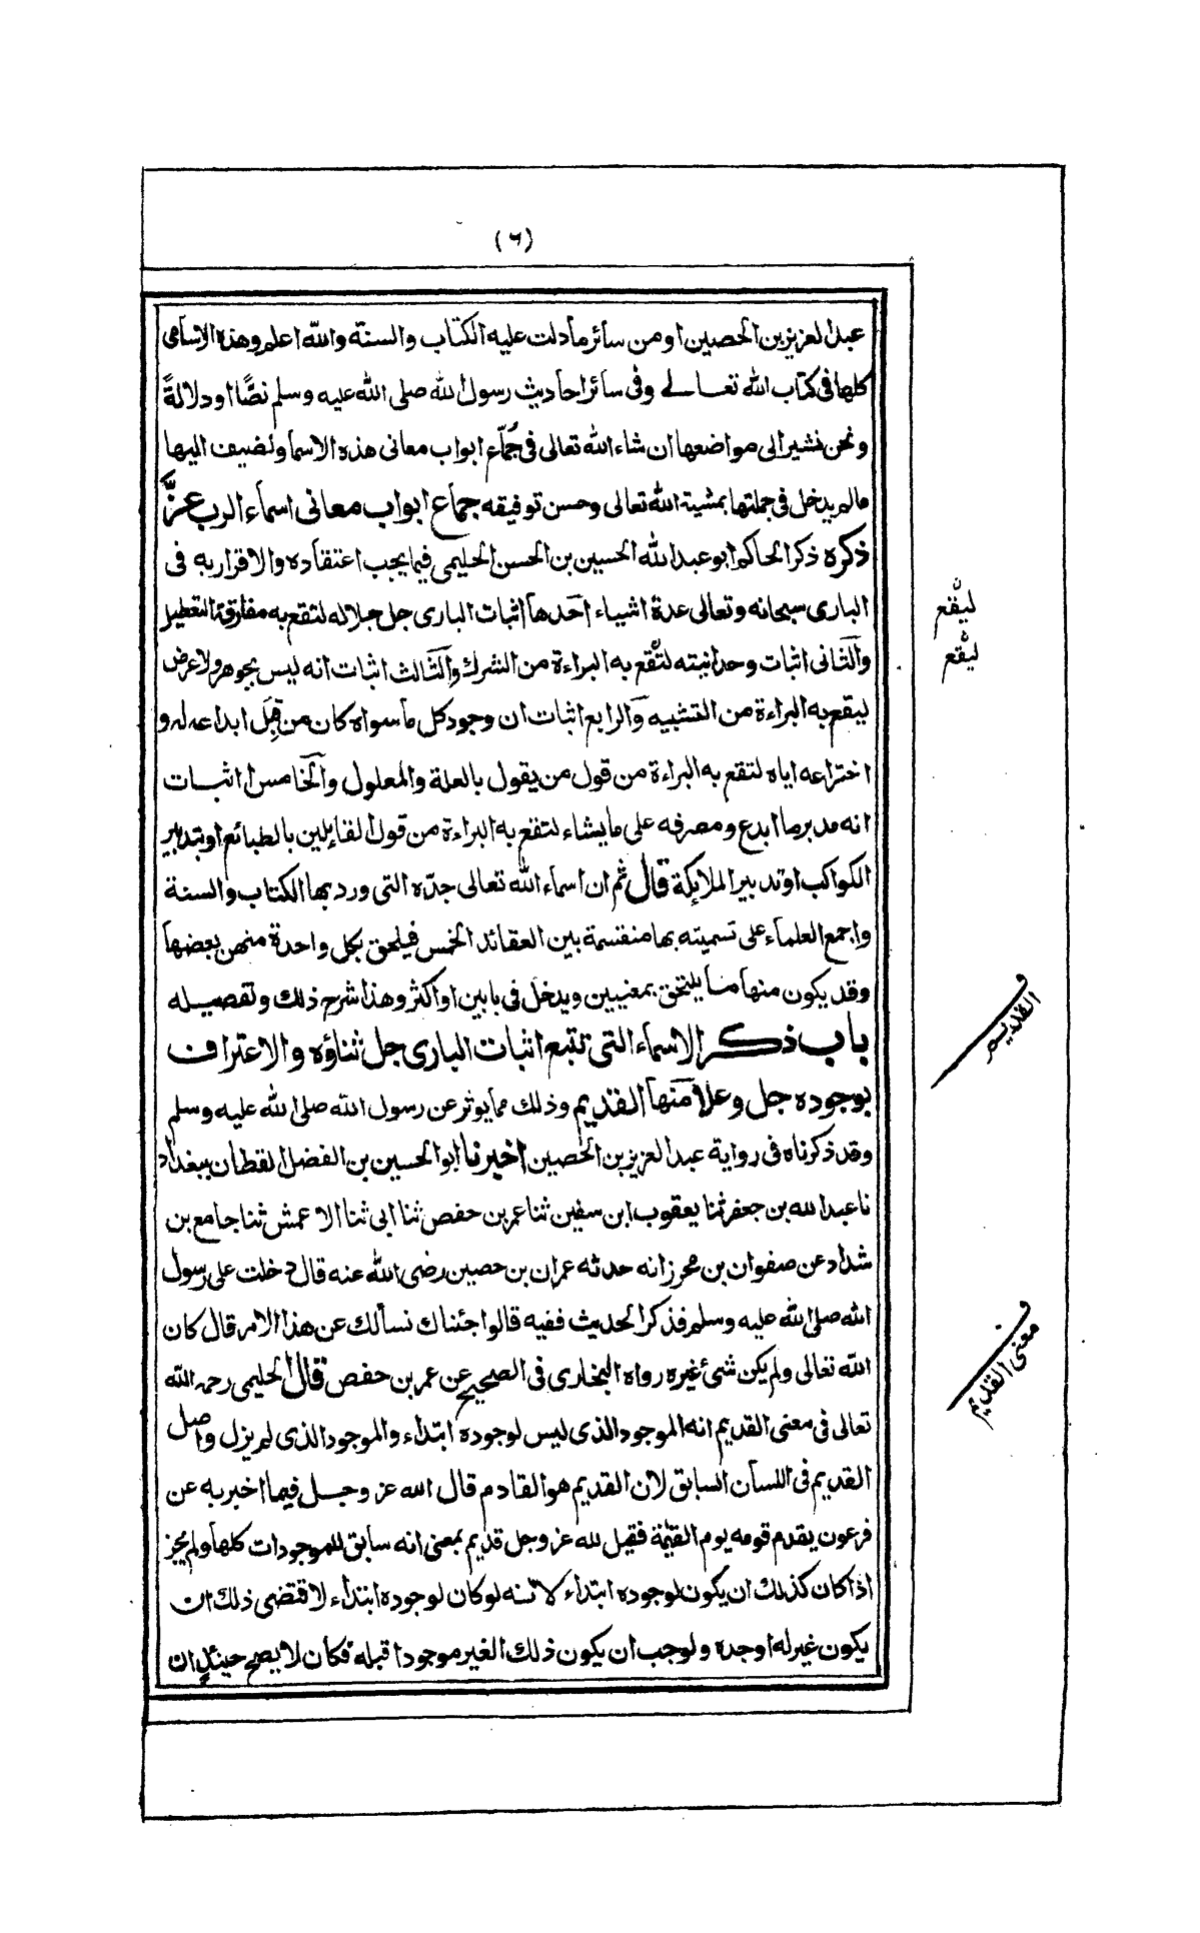 (٦)
عبد العزيز بن الحصين او من سائر ما دلت عليه الكتاب والسنة والله اعلم وهذه الاسامى
كلها فى كتاب الله تعالے وفى سائر احاديث رسول الله صلى الله عليه وسلم نصًّا او دلالةً
ونحن نشير الى مواضعها ان شاء الله تعالى فى جُمّاع ابواب معانى هذه الاسما ونضيف اليها
مالم يدخل فى جملتها بمشيته الله تعالى وحسن توفيقه جماع ابواب معانى اسماء الرب عزَّ
ذكره ذكر الحاكم ابو عبد الله الحسين بن الحسن الحليمى فيما يجب اعتقاده والاقرار به فى
البارى سبحانه وتعالى عدة اشياء احدها اثبات البارى جل جلاله لتقع به مفارقة التعطيل
والثانى اثبات وحدانيته لتقع به البراءة من الشرك والثالث اثبات انه ليس بجوهر ولا عرض
ليقع به البراءة من التشبيه والرابع اثبات ان وجود كل ما سواه كان من قِبَل ابداعه له و
اختراعه اياه لتقع به البراءة من قول من يقول بالعلة والمعلول والخامس اثبات
انه مدبر ما ابدع ومصرفه على ما يشاء لتقع به البراءة من قول القائلين بالطبائع او بتدبير
الكواكب او تدبير الملائكة قال ثم ان اسماء الله تعالى جدّه التى ورد بها الكتاب والسنة
واجمع العلماء على تسميته بها منقسمة بين العقائد الخمس فيلحق بكل واحدة منهن بعضها
وقد يكون منها ما يلتحق بمعنيين ويدخل فى بابين او اكثر وهذا شرح ذلك وتفصيله
باب ذكر الاسماء التى تتبع اثبات البارى جل ثناؤه والاعتراف
بوجوده جل وعلا منها القديم وذلك مما يوثر عن رسول الله صلى الله عليه وسلم
وقد ذكرناه فى رواية عبد العزيز بن الحصين اخبرنا ابو الحسين بن الفضل القطان ببغداد
نا عبد الله بن جعفر ثنا يعقوب ابن سفين ثنا عمر بن حفص ثنا ابى ثنا الاعمش ثنا جامع بن
شداد عن صفوان بن محرز انه حدثه عمران بن حصين رضى الله عنه قال دخلت على رسول
الله صلى الله عليه وسلم فذكر الحديث ففيه قالوا جئناك نسألك عن هذا الامر قال كان
الله تعالى ولم يكن شئ غيره رواه البخارى فى الصحيح عن عمر بن حفص قال الحليمى رحمه الله
تعالى فى معنى القديم انه الموجود الذى ليس لوجوده ابتداء والموجود الذى لم يزل واصل
القديم فى اللسان السابق لان القديم هو القادم قال الله عز وجل فيما اخبر به عن
فرعون يقدم قومه يوم القيٰمة فقيل لله عز وجل قديم بمعنى انه سابق للموجودات كلها ولم يجز
اذا كان كذلك ان يكون لوجوده ابتداء لانه لو كان لوجوده ابتداء لاقتضى ذلك ان
يكون غير له اوجده ولوجب ان يكون ذلك الغير موجودا قبله فكان لا يصح حينئذٍ ان
ليقع
ليقع
القديم
معنى القديم